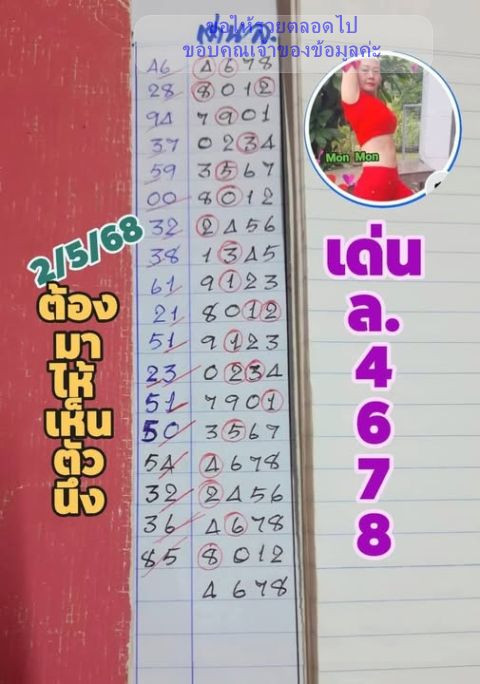 ขอให้รวยตลอดไป
ขอบคุณเจ้าของข้อมูลค่ะ
เด่น ล.
46 4678
28 8012
94 7901
37 0234
59 3567
00 8012
32 2456
38 1345
61 9123
21 8012
51 9123
23 0234
51 7901
50 3567
54 4678
32 2456
36 4678
85 8012
4678
2/5/68
ต้อง
มา
ให้
เห็น
ตัว
นึง
Mon Mon
เด่น
ล.
4
6
7
8